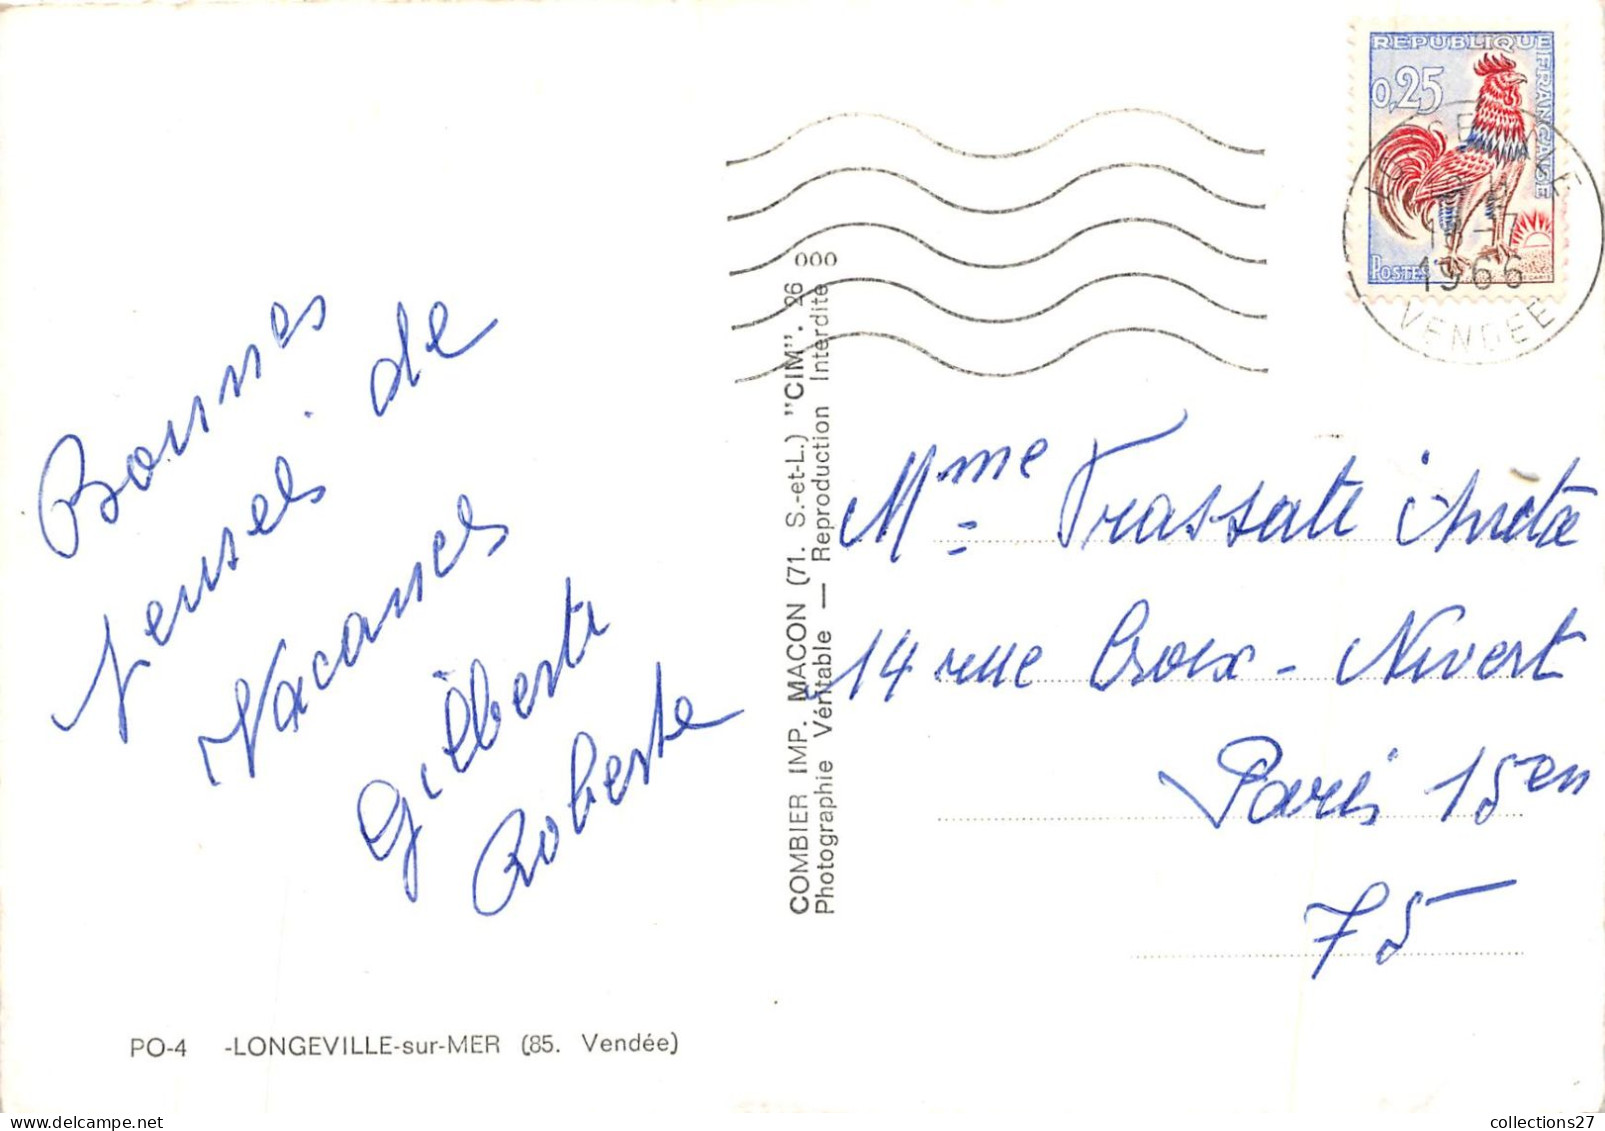 Bonnes
Pensées de
Vacances
Gilberte
Roberte
PO-4 -LONGEVILLE-sur-MER (85. Vendée)
COMBIER IMP. MACON (71. S.-et-L.) "CIM". 26 000
Photographie Véritable — Reproduction Interdite
REPUBLIQUE FRANÇAISE
0,25
POSTES
1966
VENDEE
Mme
14 rue Croix-Nivert
Paris 15en
75
collections27